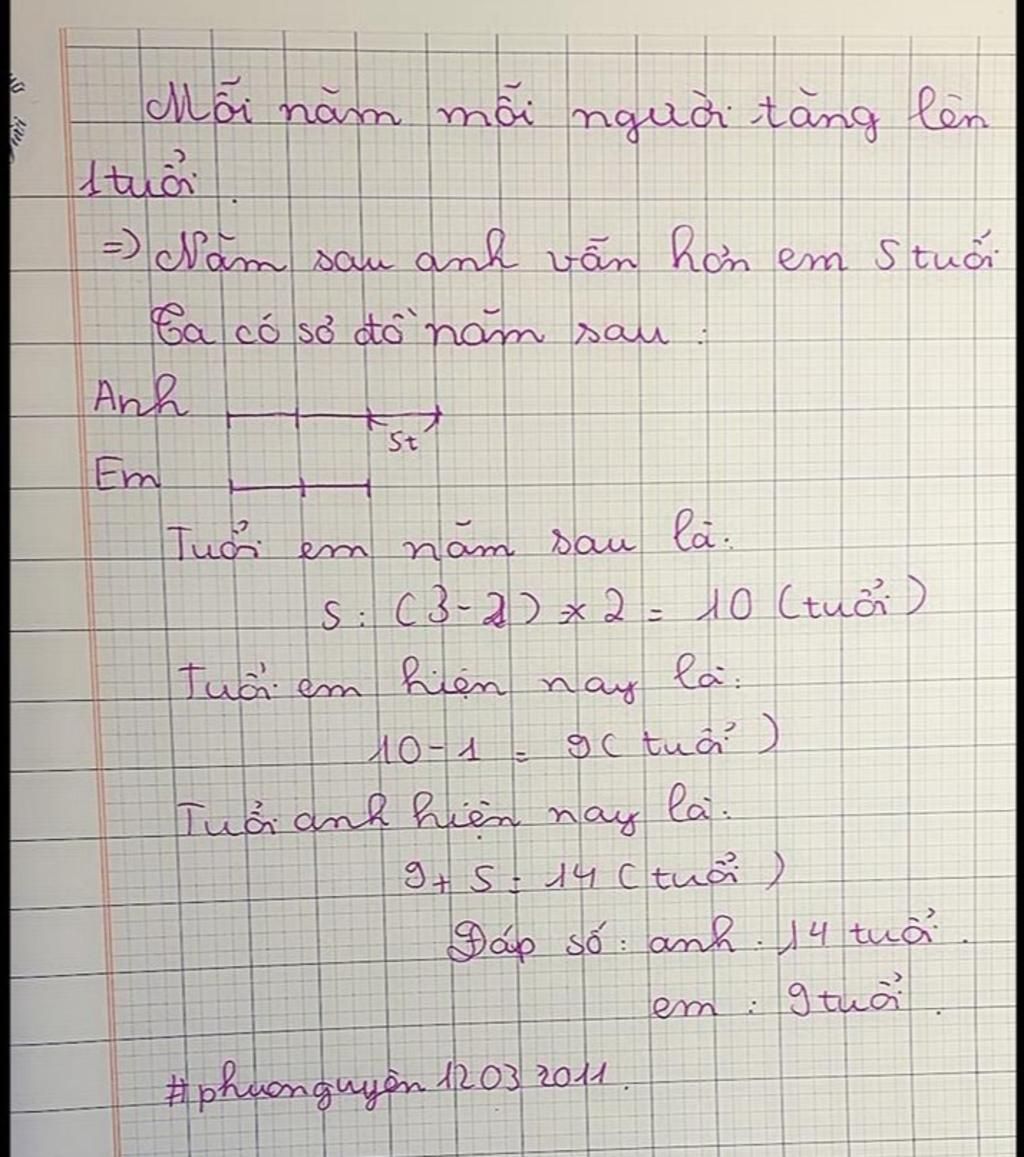 Mỗi năm mỗi người tăng lên
1 tuổi.
=> Năm sau anh vẫn hơn em 5 tuổi
Ta có sơ đồ năm sau :
Anh
5t
Em
Tuổi em năm sau là:
5 : (3-2) x 2 = 10 (tuổi)
Tuổi em hiện nay là:
10-1 = 9 (tuổi)
Tuổi anh hiện nay là:
9+5 = 14 (tuổi)
Đáp số : anh : 14 tuổi.
em : 9 tuổi.
#phuonguyên 12032011.